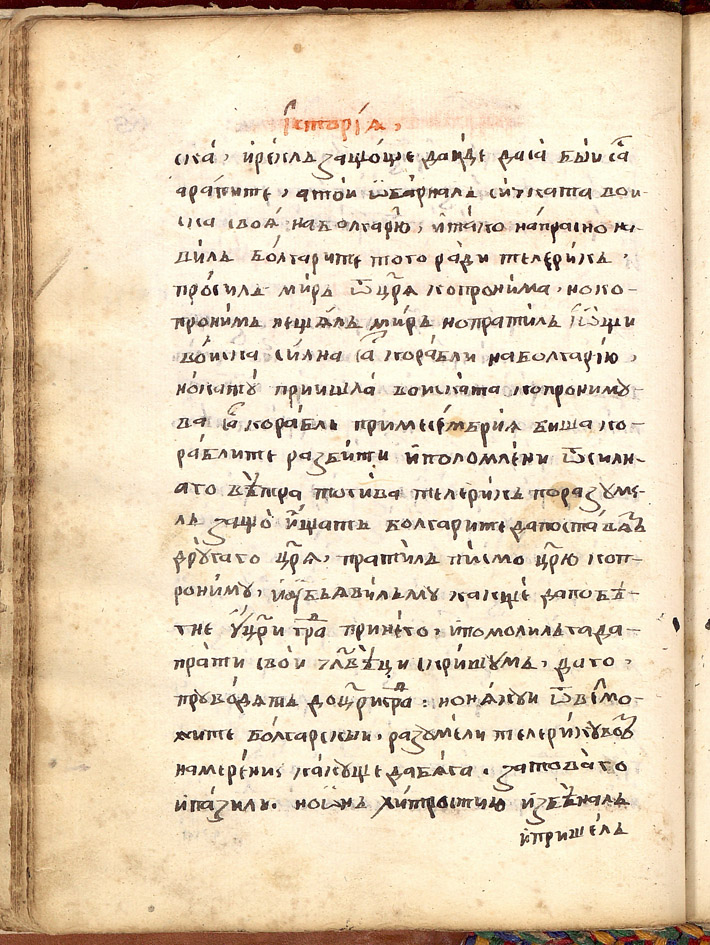 їсторїа,
ска, и рекль защо ще да иде да са бьи са
арапите, а той ѿварналь сичката вои-
ска своа на болгарїю, и тако напрасно на-
виль болгарите того ради телерикь
просиль мирь ѿ царя копронима, но ко-
пронимь нещаль мирь но пратиль и ѿщи
воиска силна са корабли на болгарїю,
но като пришла воиската копрониму-
ва са корабле при месемврия биша ко-
раблите разбити и поломлени ѿ силн-
аго вѣтра тогива телерикь поразуме-
ль защо ищать болгарите да поставѧть
другаго царя, пратиль писмо црю коп-
рониму, и обьявильму как ще да побѣ-
гне у цариграда при него, и помолильга да
прати свои члвѣци скришумь, да го
проводять до цриграда: но някуи ѿ велмо-
жите болгарскыи, разумели телерикувовъ
намеренис како ще да бяга. за това го
и пазили. но ѿнь хитростию избѣгналь
и пришель